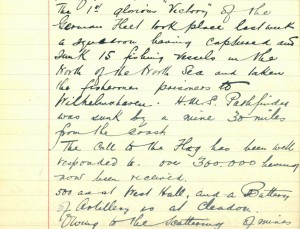 The 1st glorious "Victory" of the
German Fleet took place last week
a squadron having captured and
sunk 15 fishing vessels in the
North of the North Sea and taken
the fishermen prisoners to
Wilhelmshaven. H.M.S. Pathfinder
was sunk by a mine 30 miles
from the coast
The Call to the Flag has been well
responded to. over 300,000 having
now been received.
500 are at West Hall, and a Battery
of Artillery is at Cleadon.
Owing to the scattering of mines